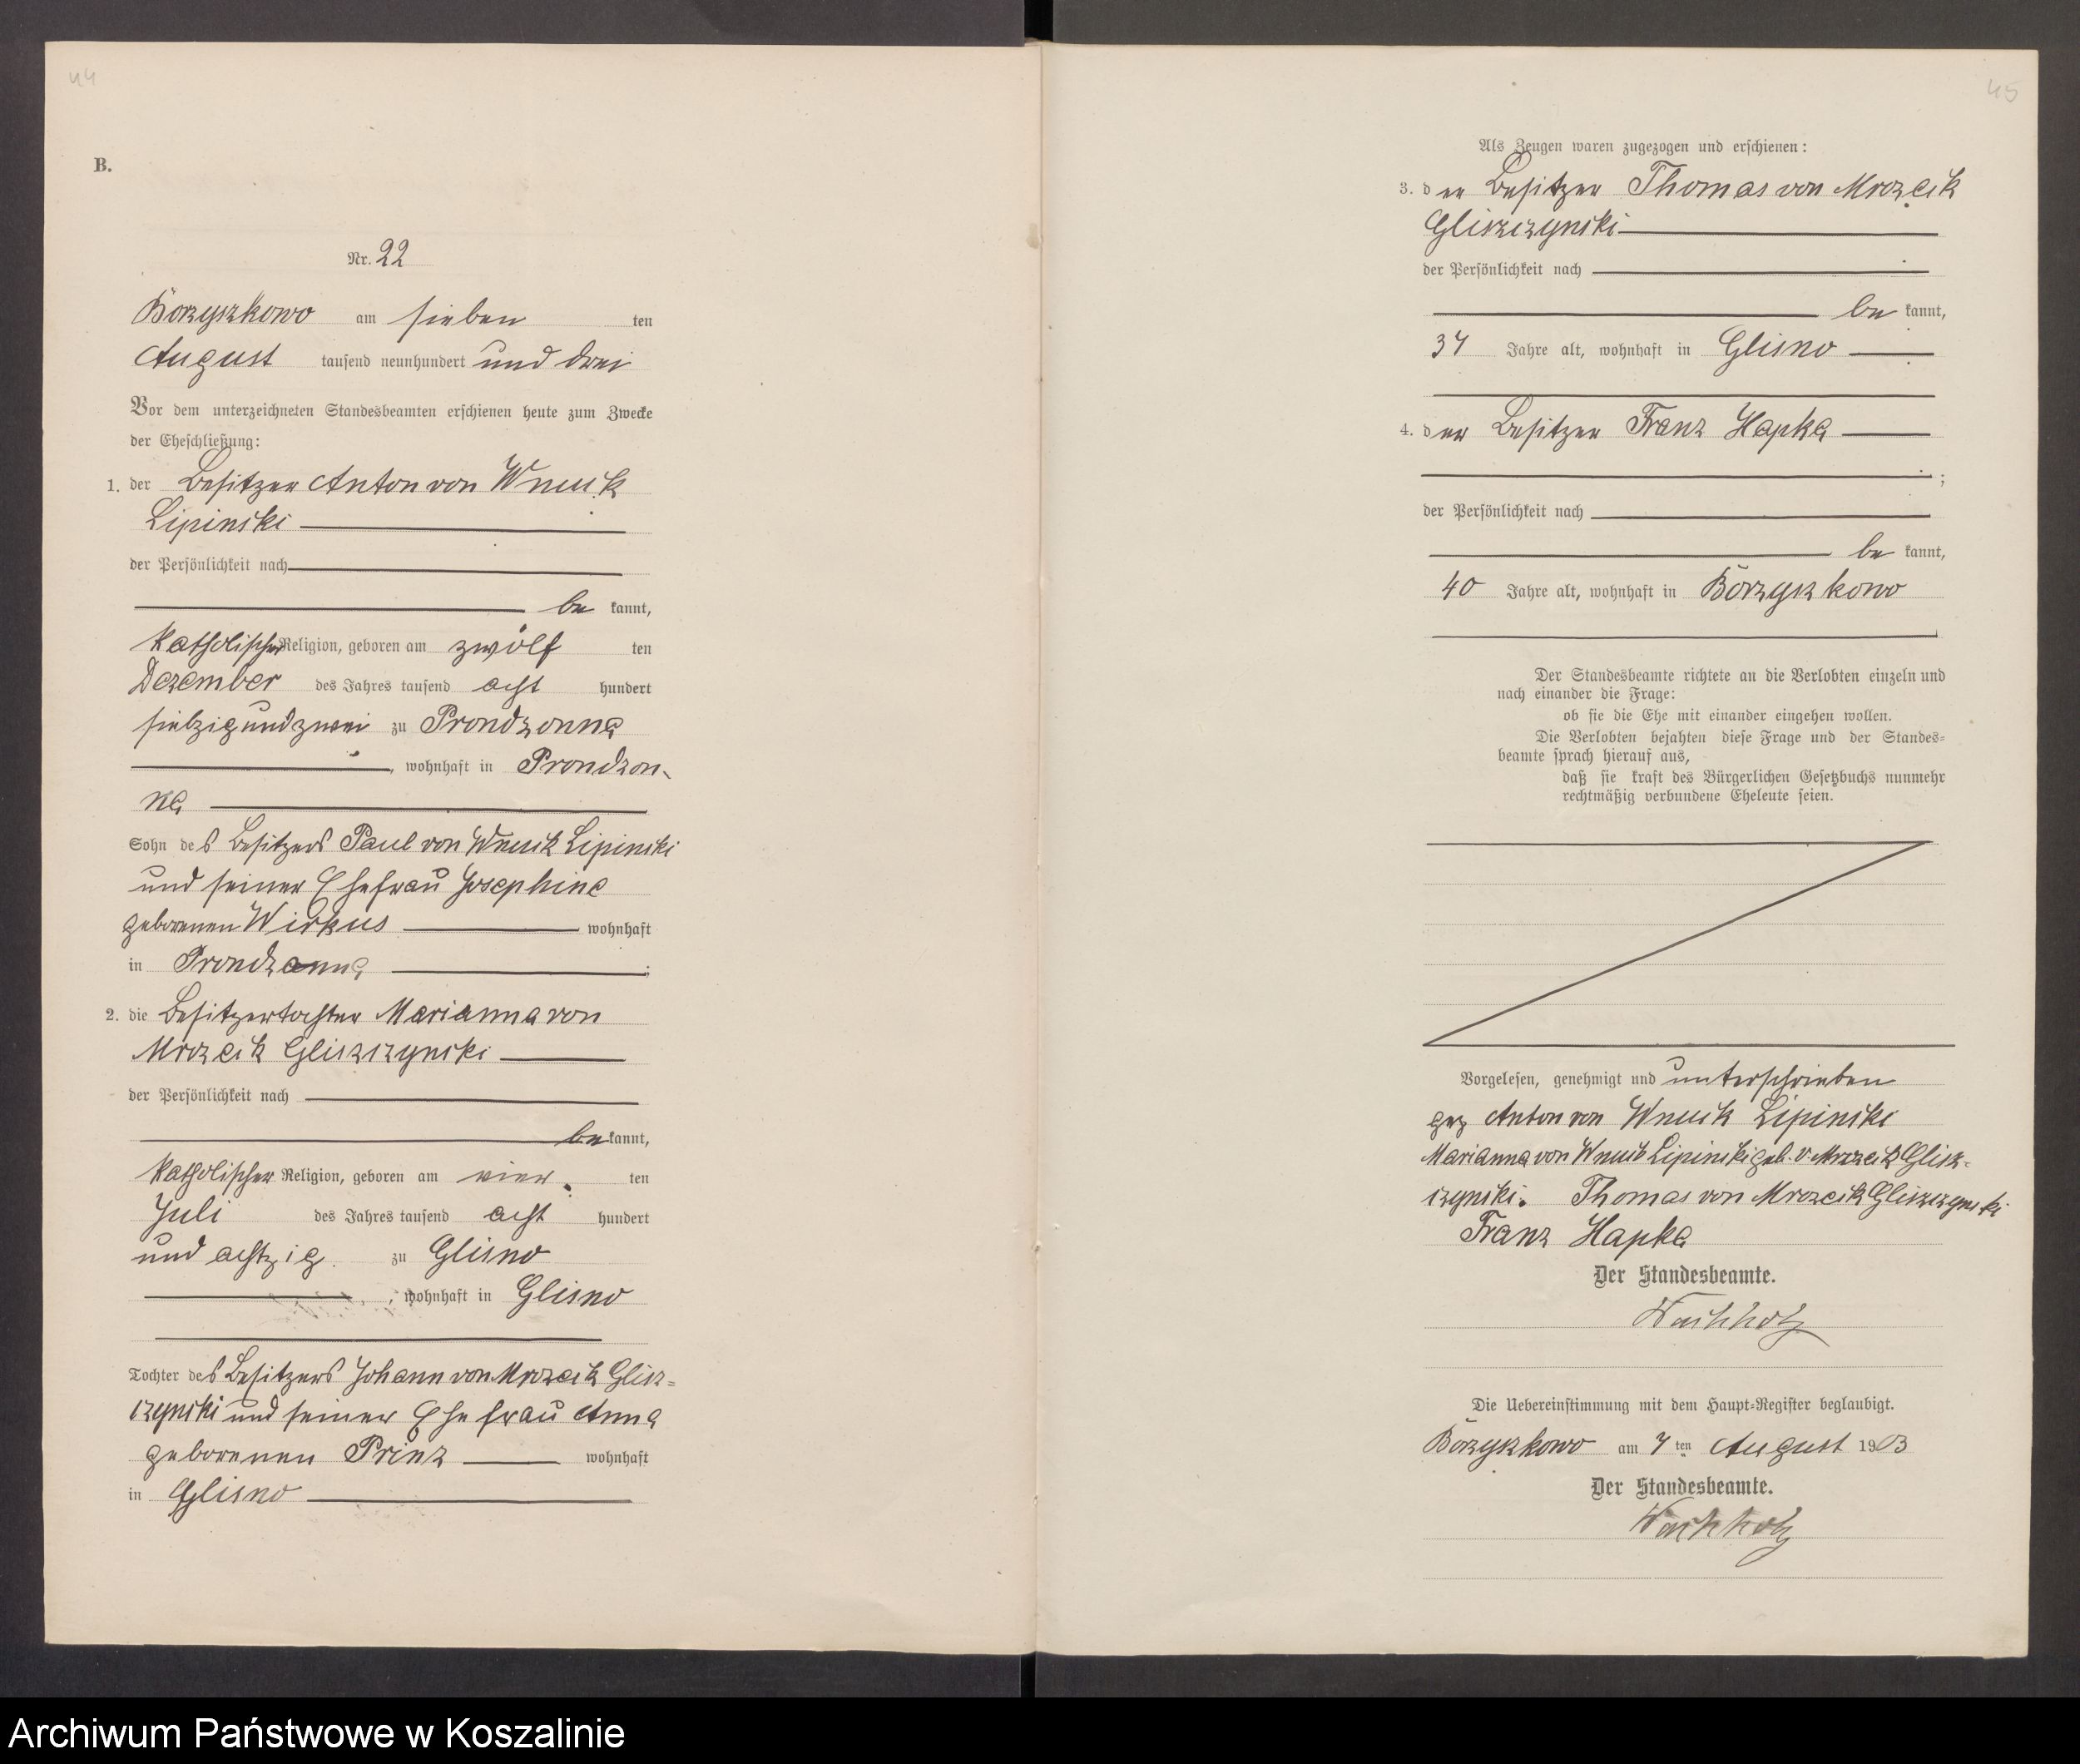 44
B.
Nr. 22
Borzyszkowo am sieben ten
August tausend neunhundert und drei
Vor dem unterzeichneten Standesbeamten erschienen heute zum Zwecke
der Eheschließung:
1. der Besitzer Anton von Wnuck
Lipinski
der Persönlichkeit nach
be kannt,
katholischer Religion, geboren am zwölf ten
Dezember des Jahres tausend acht hundert
siebzig und zwei zu Prondzonna
, wohnhaft in Prondzon-
na
Sohn des Besitzers Paul von Wnuck Lipinski
und seiner Ehefrau Josephine
geborenen Wirkus wohnhaft
in Prondzonna ;
2. die Besitzertochter Marianna von
Mrozek Gliszczynski
der Persönlichkeit nach
be kannt,
katholischer Religion, geboren am vier ten
Juli des Jahres tausend acht hundert
und achtzig zu Glisno
, wohnhaft in Glisno
Tochter des Besitzers Johann von Mrozek Glisz=
czynski und seiner Ehefrau Anna
geborenen Prinz wohnhaft
in Glisno
45
Als Zeugen waren zugezogen und erschienen:
3. der Besitzer Thomas von Mrozek
Gliszczynski
der Persönlichkeit nach
be kannt,
37 Jahre alt, wohnhaft in Glisno
4. der Besitzer Franz Hapka
;
der Persönlichkeit nach
be kannt,
40 Jahre alt, wohnhaft in Borzyszkowo
Der Standesbeamte richtete an die Verlobten einzeln und
nach einander die Frage:
ob sie die Ehe mit einander eingehen wollen.
Die Verlobten bejahten diese Frage und der Standes=
beamte sprach hierauf aus,
daß sie kraft des Bürgerlichen Gesetzbuchs nunmehr
rechtmäßig verbundene Eheleute seien.
Vorgelesen, genehmigt und unterschrieben
gez Anton von Wnuck Lipinski
Marianna von Wnuck Lipinski geb. v. Mrozek Glisz-
czynski. Thomas von Mrozek Gliszczynski
Franz Hapka
Der Standesbeamte.
Die Uebereinstimmung mit dem Haupt=Register beglaubigt.
Borzyszkowo am 7 ten August 1903
Der Standesbeamte.
Archiwum Państwowe w Koszalinie